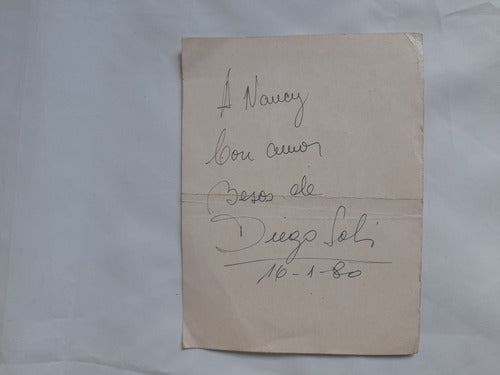 A Nancy
Con amor
Besos de
Diego Solis
16-1-80